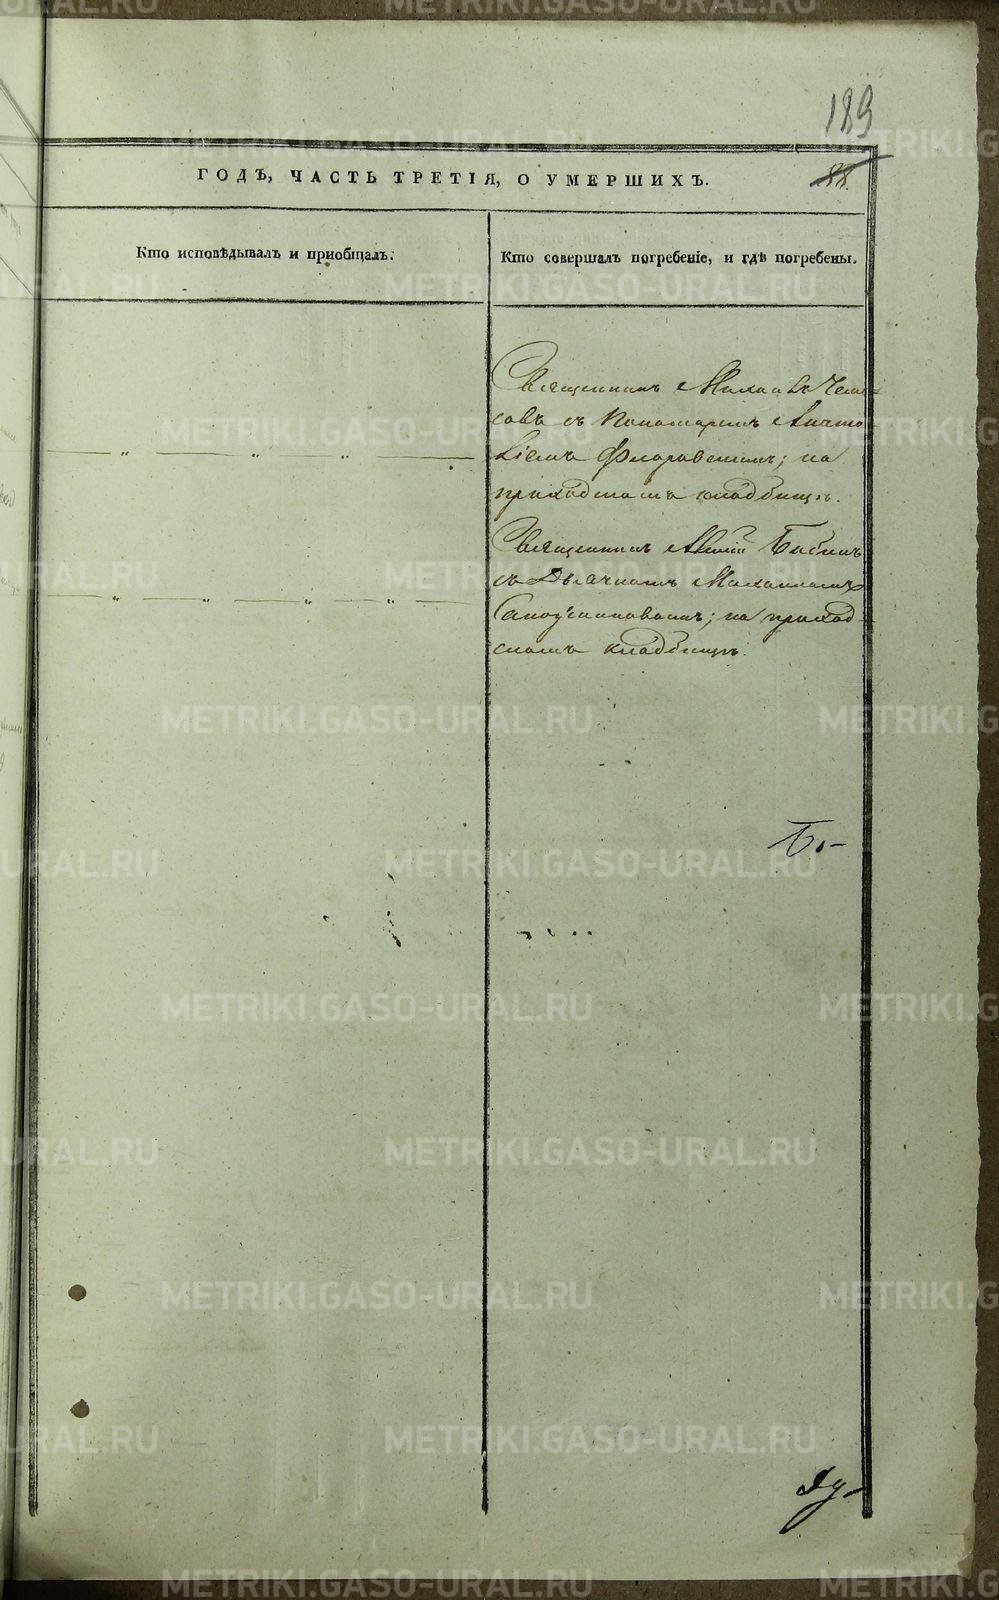 189
88.
ГОДЪ, ЧАСТЬ ТРЕТІЯ, О УМЕРШИХЪ.
Кто исповѣдывалъ и пріобщалъ.
Кто совершалъ погребеніе, и гдѣ погребены.
Священникъ Михаилъ
совъ съ Пономаремъ Анато
ліемъ Флоровскимъ; на
приходскомъ кладбищѣ.
Священникъ Бабинъ
съ Дьячкомъ Михаиломъ
на приход
скомъ кладбищѣ.
METRIKI.GASO-URAL.RU